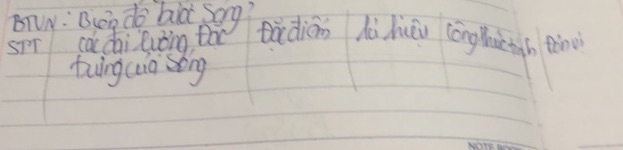 BTVN:
STT các đại lượng đặc Đặc điểm kí hiệu công thức tính đơn vị
trưng của sóng
NOTE BOOK